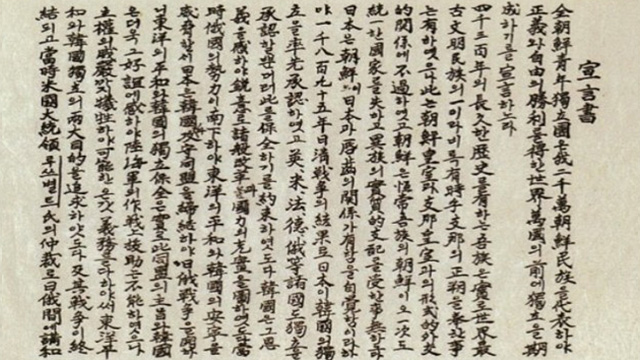 宣言書
全朝鮮青年獨立團은我二千萬朝鮮民族을代表하야
正義와自由의勝利를得한世界萬國의前에獨立을期
成하기를宣言하노라
四千三百年의長久한歷史를有하는吾族은實로世界最
古文明民族의一이라비록有時乎支那의正朔을奉한事
는有하엿으나此는朝鮮皇室과支那皇室과의形式的外交
的關係에不過하엿고朝鮮은恒常吾族의朝鮮이오一次도
統一한國家를失하고異族의實質的支配를受한事無하도다
日本은朝鮮이日本과脣齒의關係가有함을自覺함이라하
야一千八百九十五年日清戰爭의結果로日本이韓國의獨
立을率先承認하엿고英、米、法、德、俄等諸國도獨立을
承認할뿐더러此를保全하기를約束하엿도다韓國은그恩
義를感하야銳意로諸般改革과國力의充實을圖하엿도다當
時俄國의勢力이南下하야東洋의平和와韓國의安寧을
威脅할세日本은韓國과攻守同盟을締結하야日俄戰爭을開하
니東洋의平和와韓國의獨立保全은實로此同盟의主旨라韓國
은더욱그好誼에感하야陸海軍의作戰上援助는不能하엿으나
主權의威嚴까지犧牲하야可能한온갓義務를다하야써東洋平
和와韓國獨立의兩大目的을追求하얏도다及其戰爭이終
結되고當時米國大統領루쓰벨트氏의仲裁로日俄間에講和